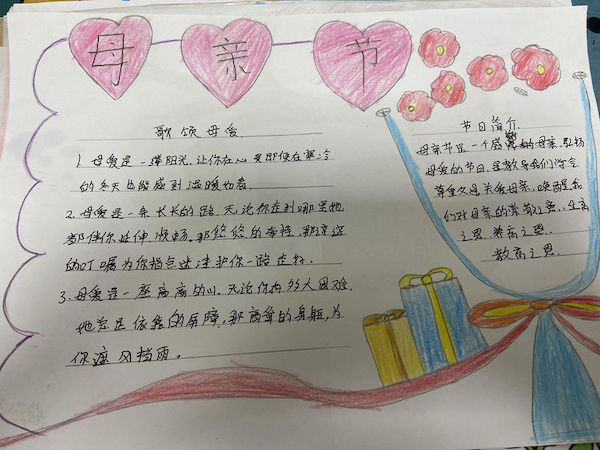 母亲节
歌颂母爱
1.母爱是一缕阳光,让你在心灵即使在寒冷
的冬天也能感到温暖如春.
2.母爱是一条长长的路.无论你走到哪里她
都伴你延伸.顺畅.那悠悠的牵挂.那谆谆
的叮嘱为你指点迷津护你一路走好.
3.母爱是一座高高的山.无论你有多大困难.
她总是依靠的屏障,那高耸的身躯,为
你遮风挡雨。
节日简介
母亲节是一个感母亲.弘扬
母爱的节日.是教导我们学会
尊重父母关爱母亲.唤醒我
们对母亲的崇敬之意.生育
之恩.养育之恩.
教育之恩.